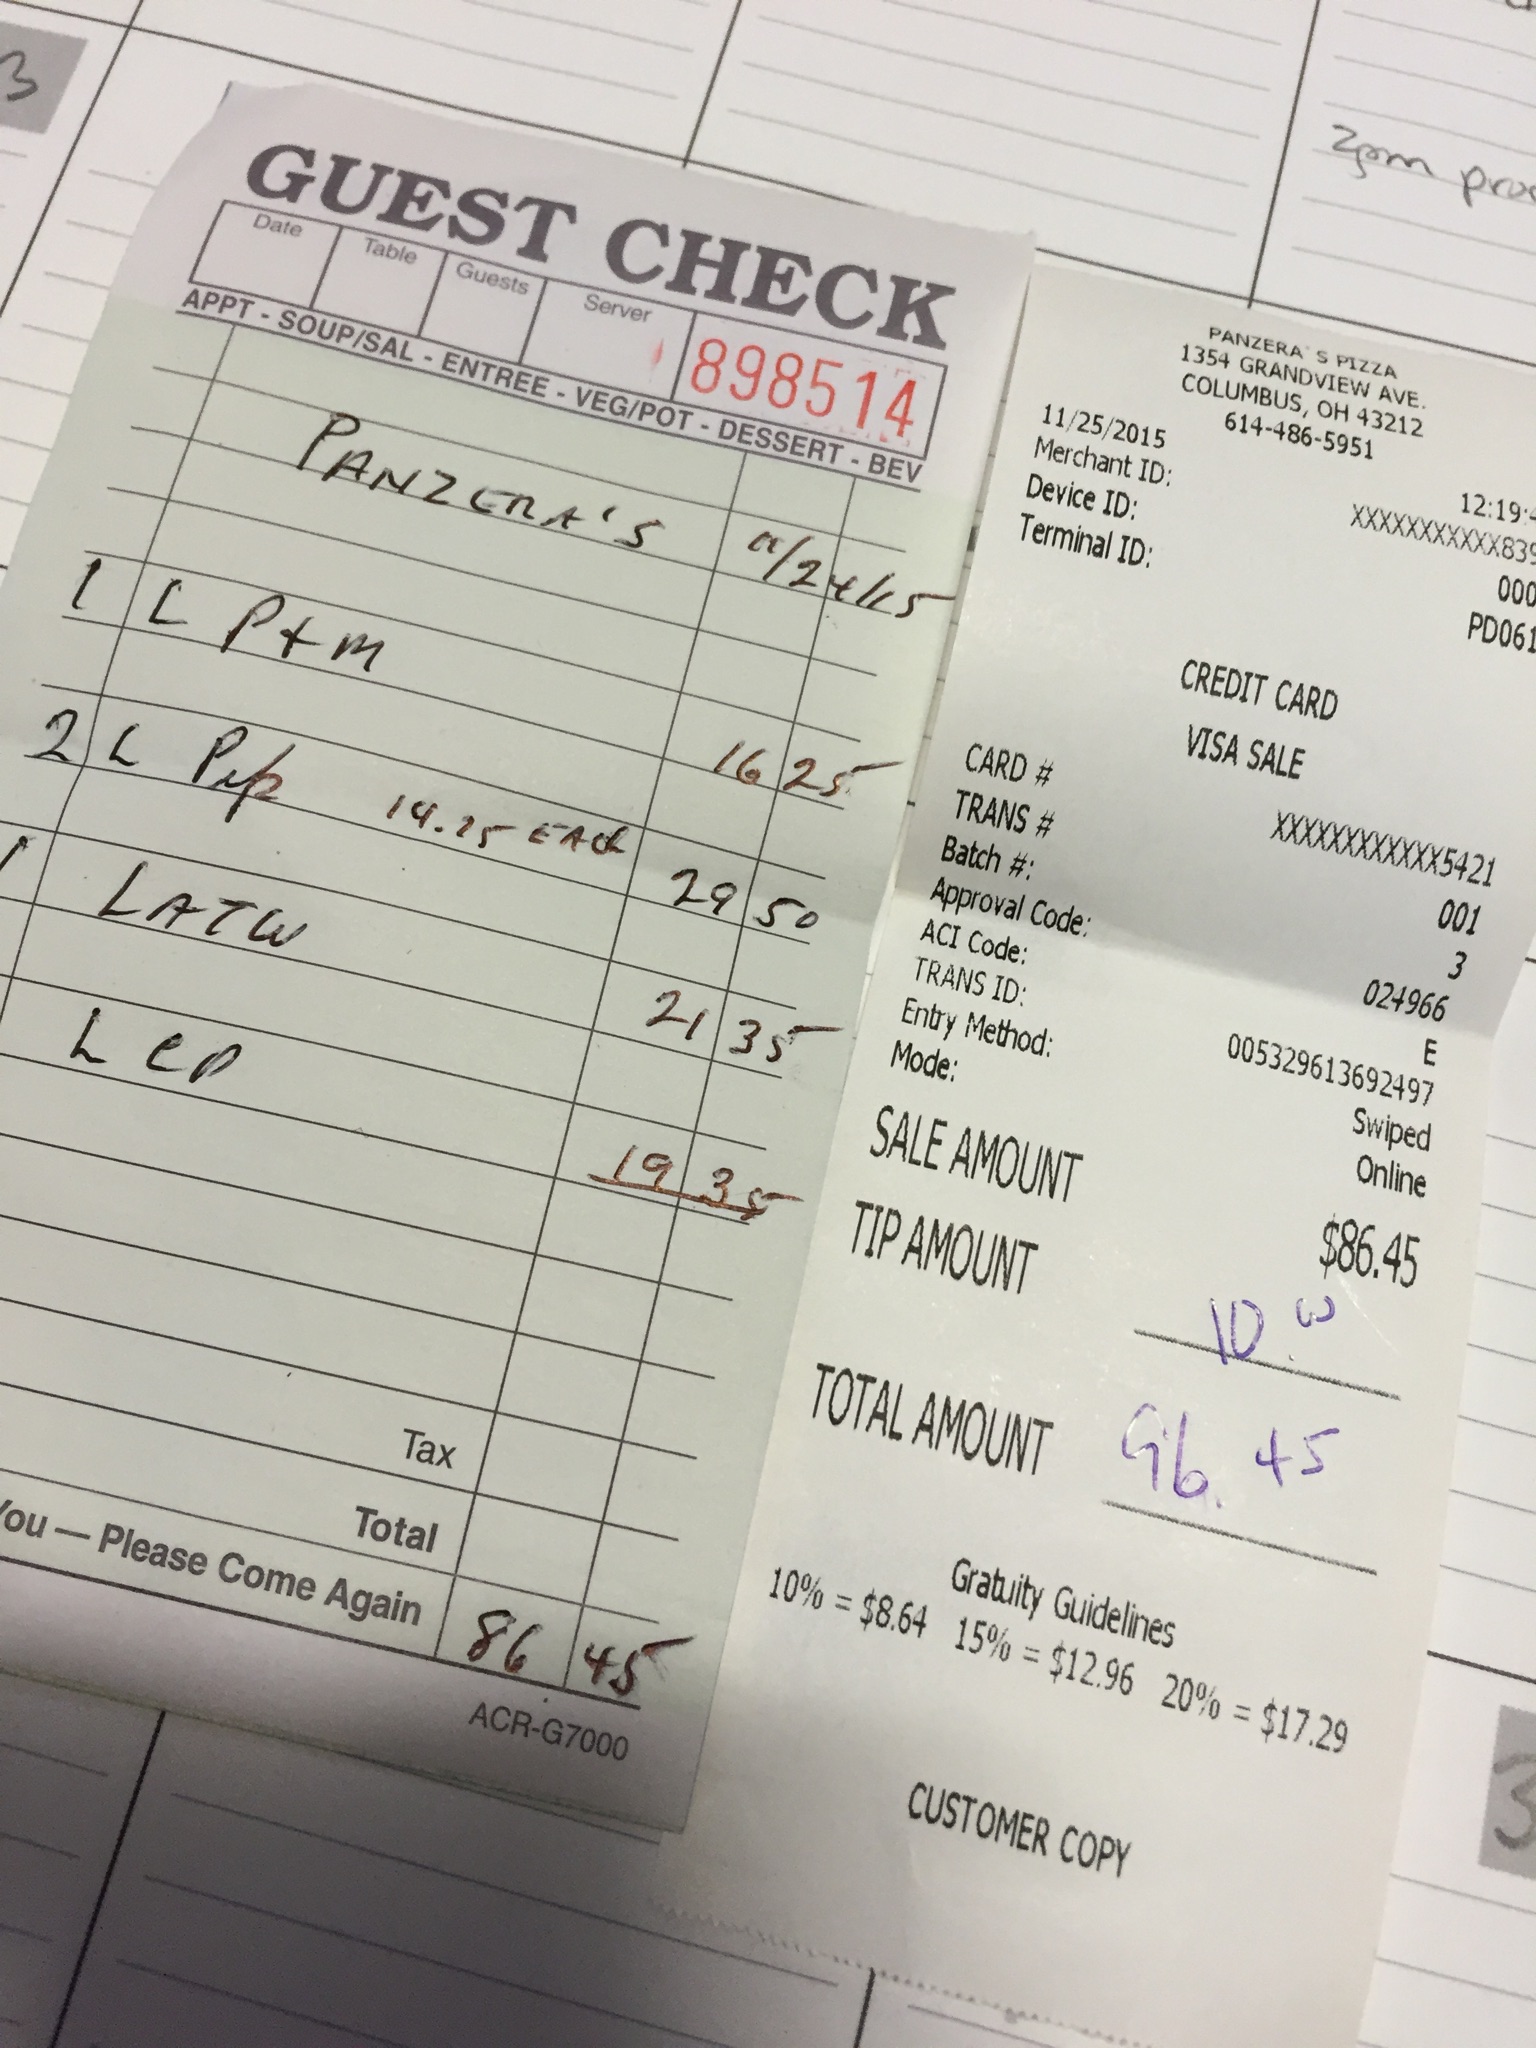 3
2pm
GUEST CHECK
Date Table Guests Server
898514
APPT - SOUP/SAL - ENTREE - VEG/POT - DESSERT - BEV
PANZERA'S 11/24/15
1 L P+M
16 25
2 L Pep 14.25 EACH
29 50
1 LATW
21 35
L CP
19 35
Tax
Total
You — Please Come Again
86 45
ACR-G7000
PANZERA'S PIZZA
1354 GRANDVIEW AVE.
COLUMBUS, OH 43212
614-486-5951
11/25/2015 12:19:4
Merchant ID: XXXXXXXXXXX839
Device ID: 000
Terminal ID: PD061
CREDIT CARD
VISA SALE
CARD # XXXXXXXXXXXX5421
TRANS # 001
Batch #: 3
Approval Code: 024966
ACI Code: E
TRANS ID: 005329613692497
Entry Method: Swiped
Mode: Online
SALE AMOUNT $86.45
TIP AMOUNT 10.00
TOTAL AMOUNT 96.45
Gratuity Guidelines
10% = $8.64 15% = $12.96 20% = $17.29
CUSTOMER COPY
3